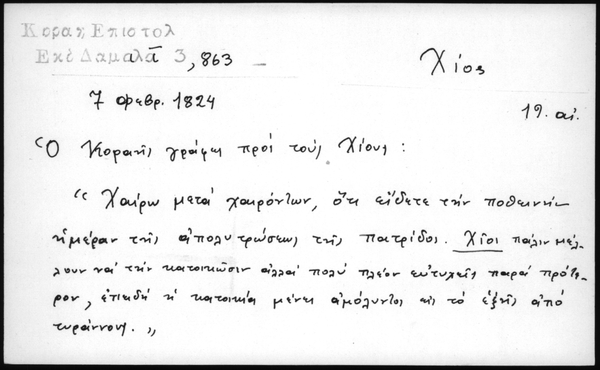 Κοραη Επιστολ
Εκδ Δαμαλα τ 3, 863
Χίος
7 Φεβρ. 1824
19. αἰ.
Ὁ Κοραῆς γράφει πρὸς τοὺς Χίους :
"Χαίρω μετὰ χαιρόντων, ὅτι εἴδετε τὴν ποθεινὴν
ἡμέραν τῆς ἀπολυτρώσεως τῆς πατρίδος. Χῖοι πάλιν μέλ-
λουν νὰ τὴν κατοικῶσιν ἀλλὰ πολὺ πλέον εὐτυχεῖς παρὰ πρότε-
ρον, ἐπειδὴ ἡ κατοικία μένει ἀμόλυντος εἰς τὸ ἑξῆς ἀπὸ
τυράννους."